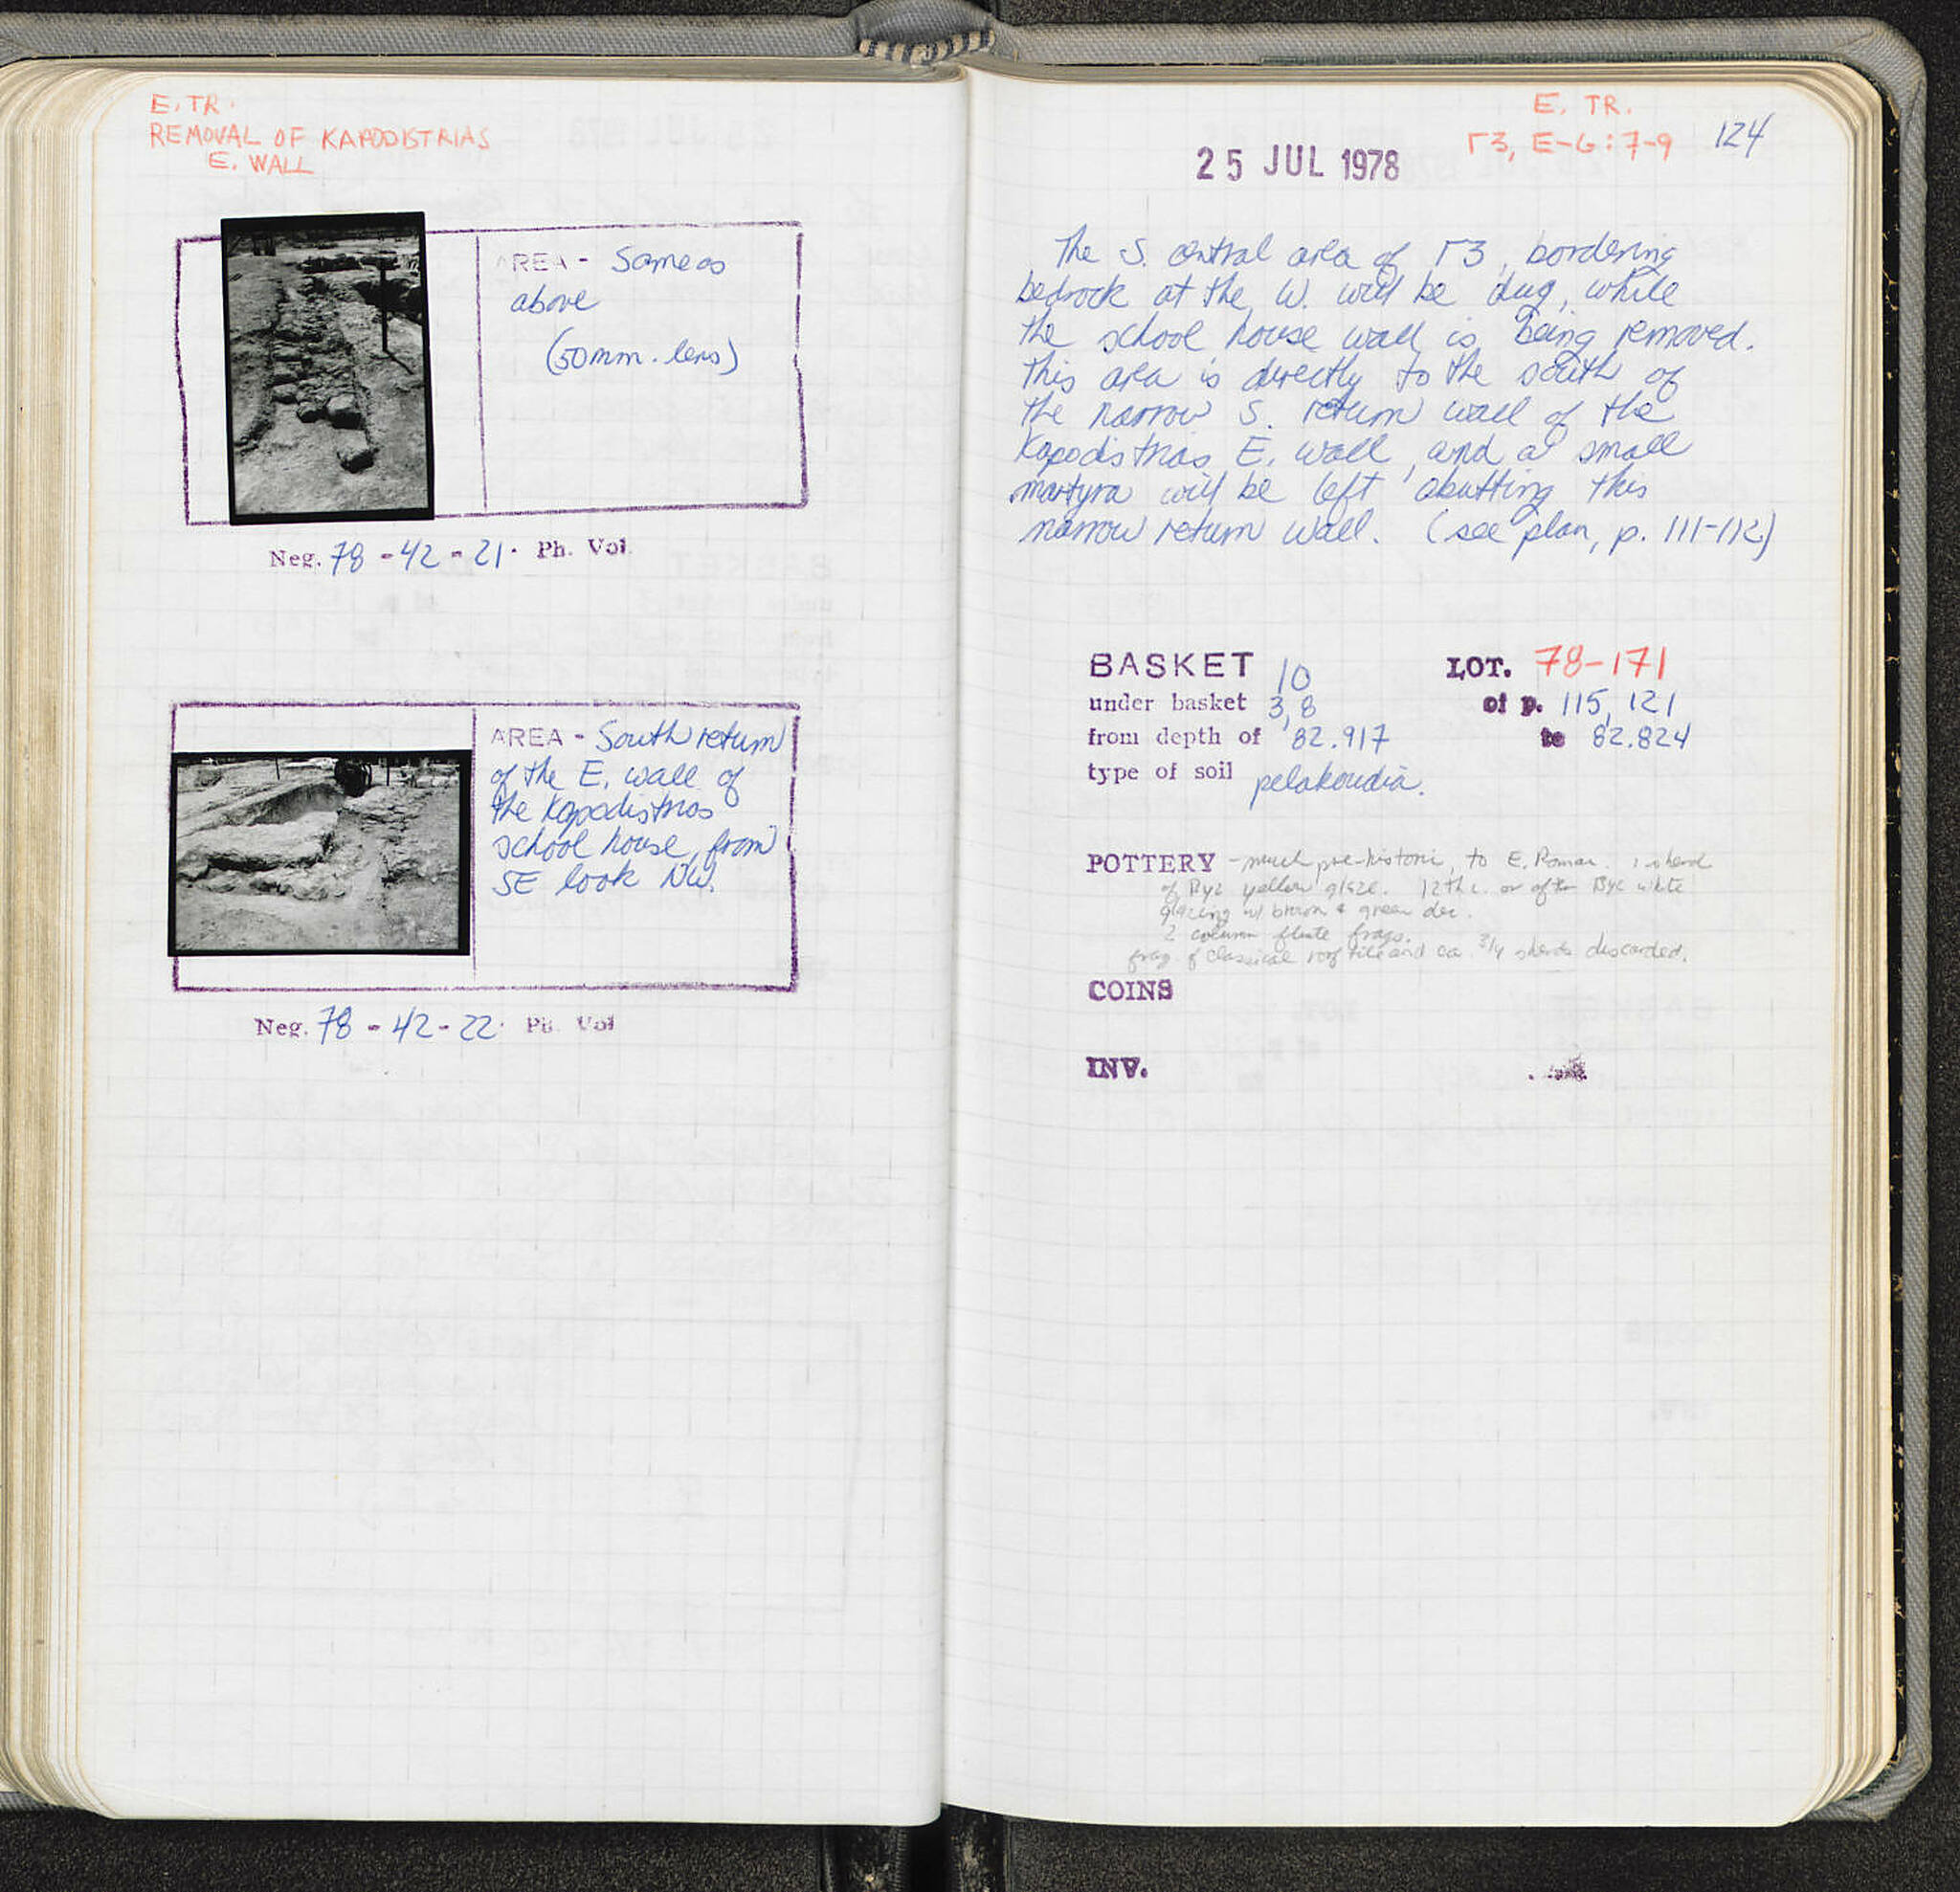 E. TR.
REMOVAL OF KAPODISTRIAS
E. WALL
AREA - Same as
above
(50mm. lens)
Neg. 78 - 42 - 21 · Ph. Vol.
AREA - South return
of the E. wall of
the Kapodistrias
school house, from
SE look NW.
Neg. 78 - 42 - 22 · Ph. Vol
E. TR.
Γ3, E-G: 7-9
124
25 JUL 1978
The S. central area of Γ3, bordering
bedrock at the W. will be dug, while
the school house wall is being removed.
This area is directly to the south of
the narrow S. return wall of the
Kapodistrias E. wall, and a small
martyra will be left abutting this
narrow return wall. (see plan, p. 111-112)
BASKET 10 LOT. 78-171
under basket 3, 8 of p. 115, 121
from depth of 82.917 to 82.824
type of soil pelakoudia.
POTTERY - much pre-historic, to E. Roman. 1 sherd
of Byz yellow glaze. 12th c. or after Byz white
glazing w/ brown & green dec.
2 column flute frags.
frag. of classical roof tile and ca. 3/4 sherds discarded.
COINS
INV.